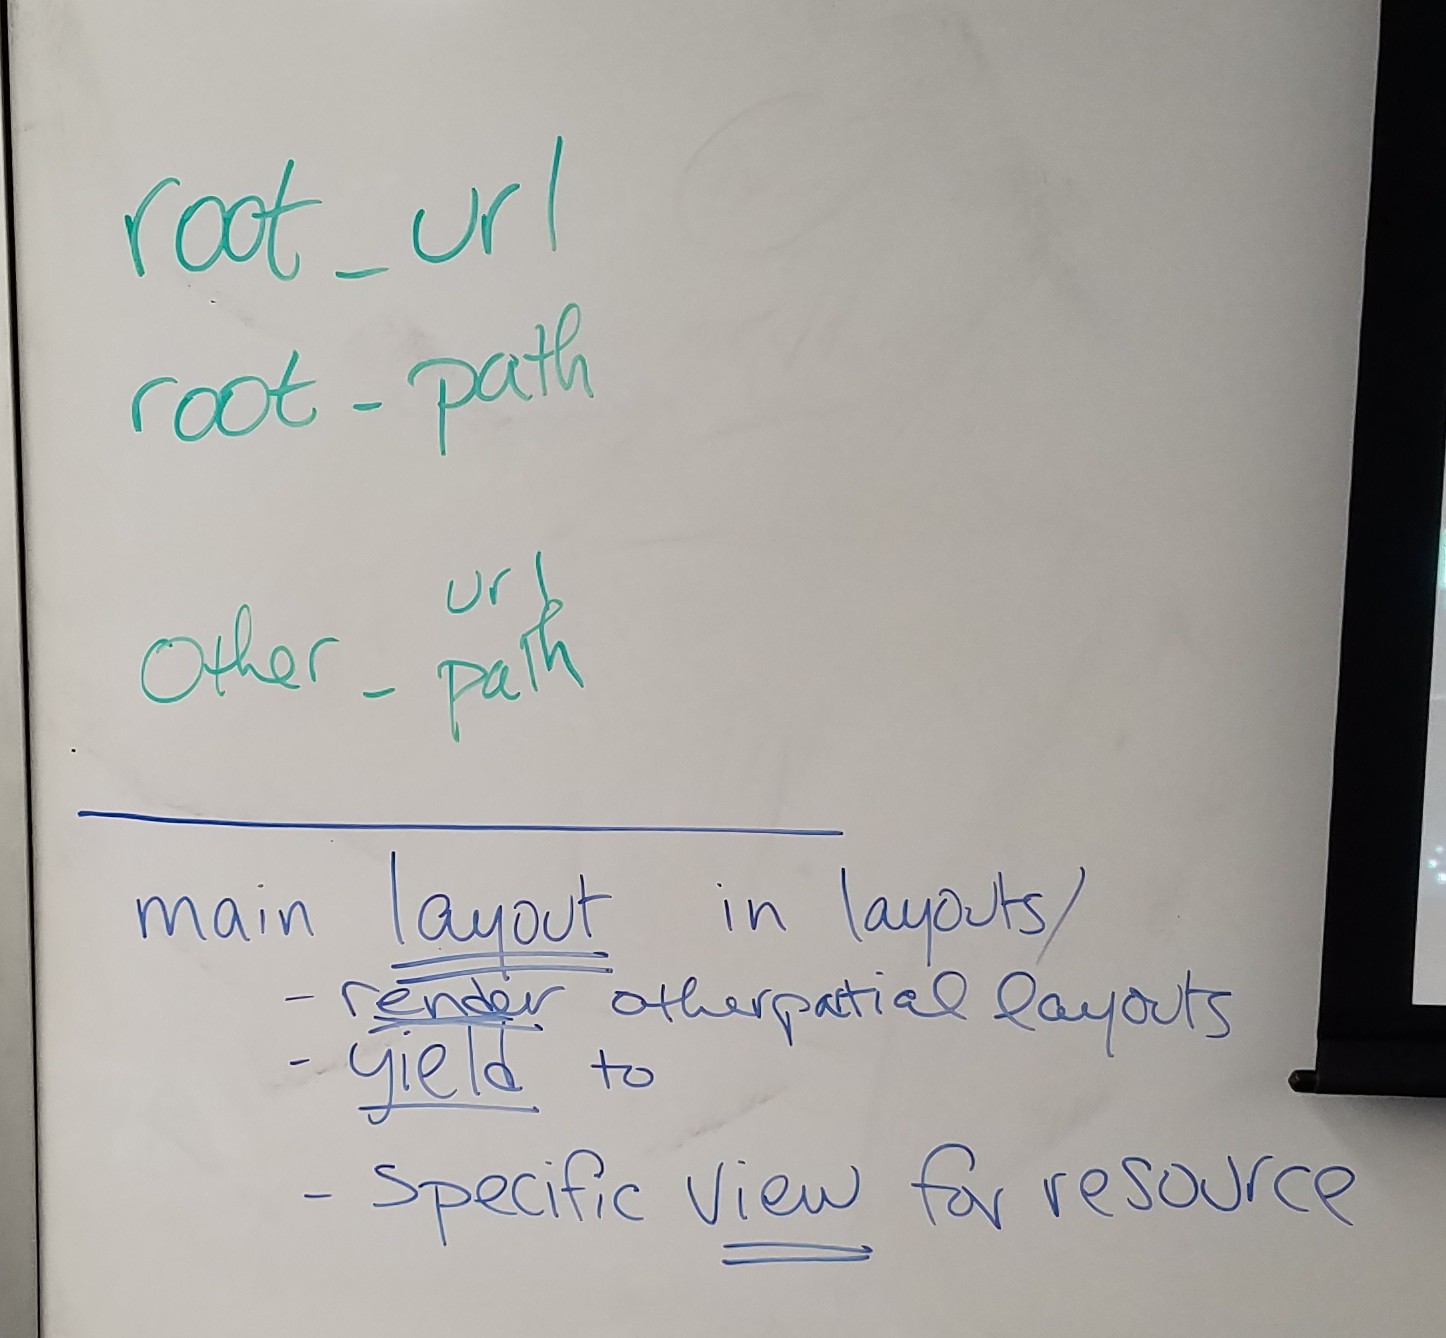 root_url
root_path
url
other_path
main layout in layouts/
- render other partial layouts
- yield to
- specific view for resource